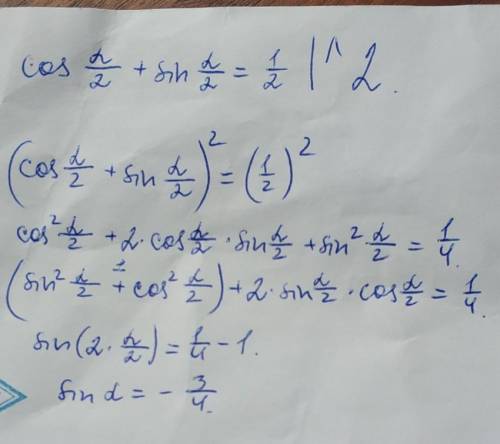 cos α/2 + sin α/2 = 1/2 |^2.
(cos α/2 + sin α/2)² = (1/2)²
cos² α/2 + 2·cos α/2 · sin α/2 + sin² α/2 = 1/4.
(sin² α/2 + cos² α/2) + 2·sin α/2 · cos α/2 = 1/4.
sin(2 · α/2) = 1/4 - 1.
sin α = - 3/4.